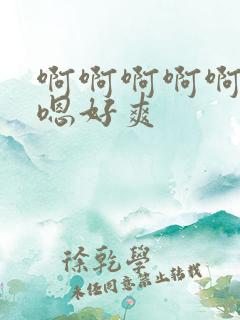 啊啊啊啊啊
嗯好爽
徐乾學
未经同意禁止转载